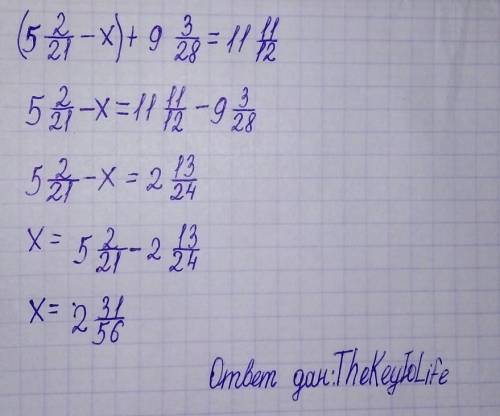 (5 2/21 - x) + 9 3/28 = 11 11/12
5 2/21 - x = 11 11/12 - 9 3/28
5 2/21 - x = 2 13/24
x = 5 2/21 - 2 13/24
x = 2 31/56
Ответ дан: TheKeyToLife